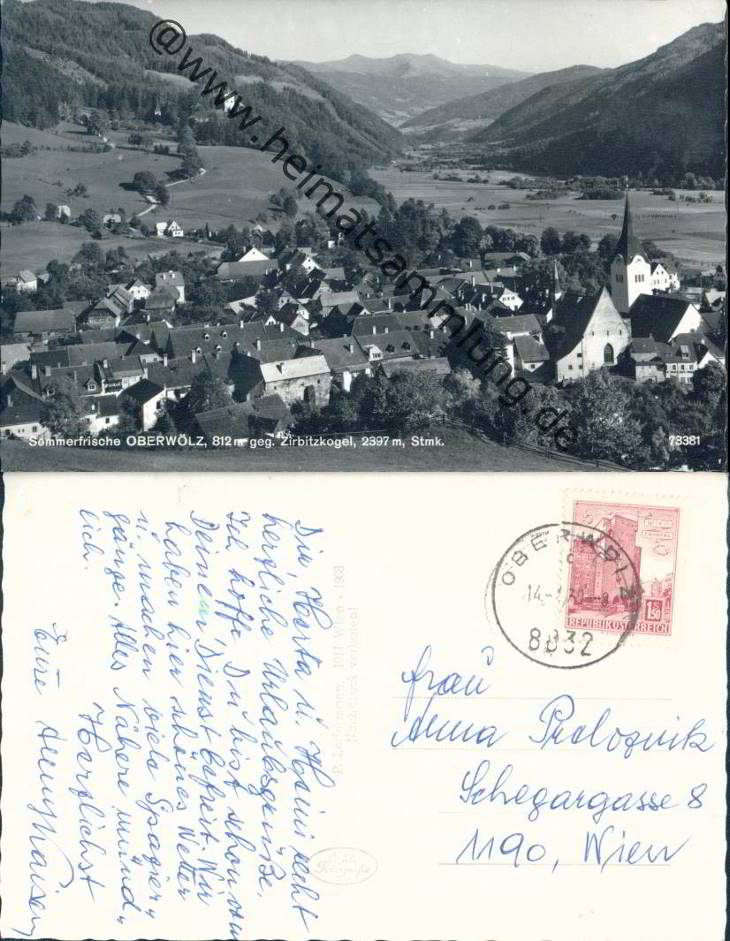 @www.heimatsammlung.de
Sommerfrische OBERWÖLZ, 812 m geg. Zirbitzkogel, 2397 m, Stmk.
73381
Dir, Herta u. Heini recht
herzliche Urlaubsgrüße.
Ich hoffe Du bist schon am
Deinem Dienst befreit. Wir
haben hier schönes Wetter
u. machen viele Spazier„
gänge. Alles Nähere münd„
lich. Herzlichst
Eure
OBERWÖLZ
8832
1.50
REPUBLIK ÖSTERREICH
Frau
Anna Preloznik
Schegargasse 8
1190, Wien
Wien - 1968